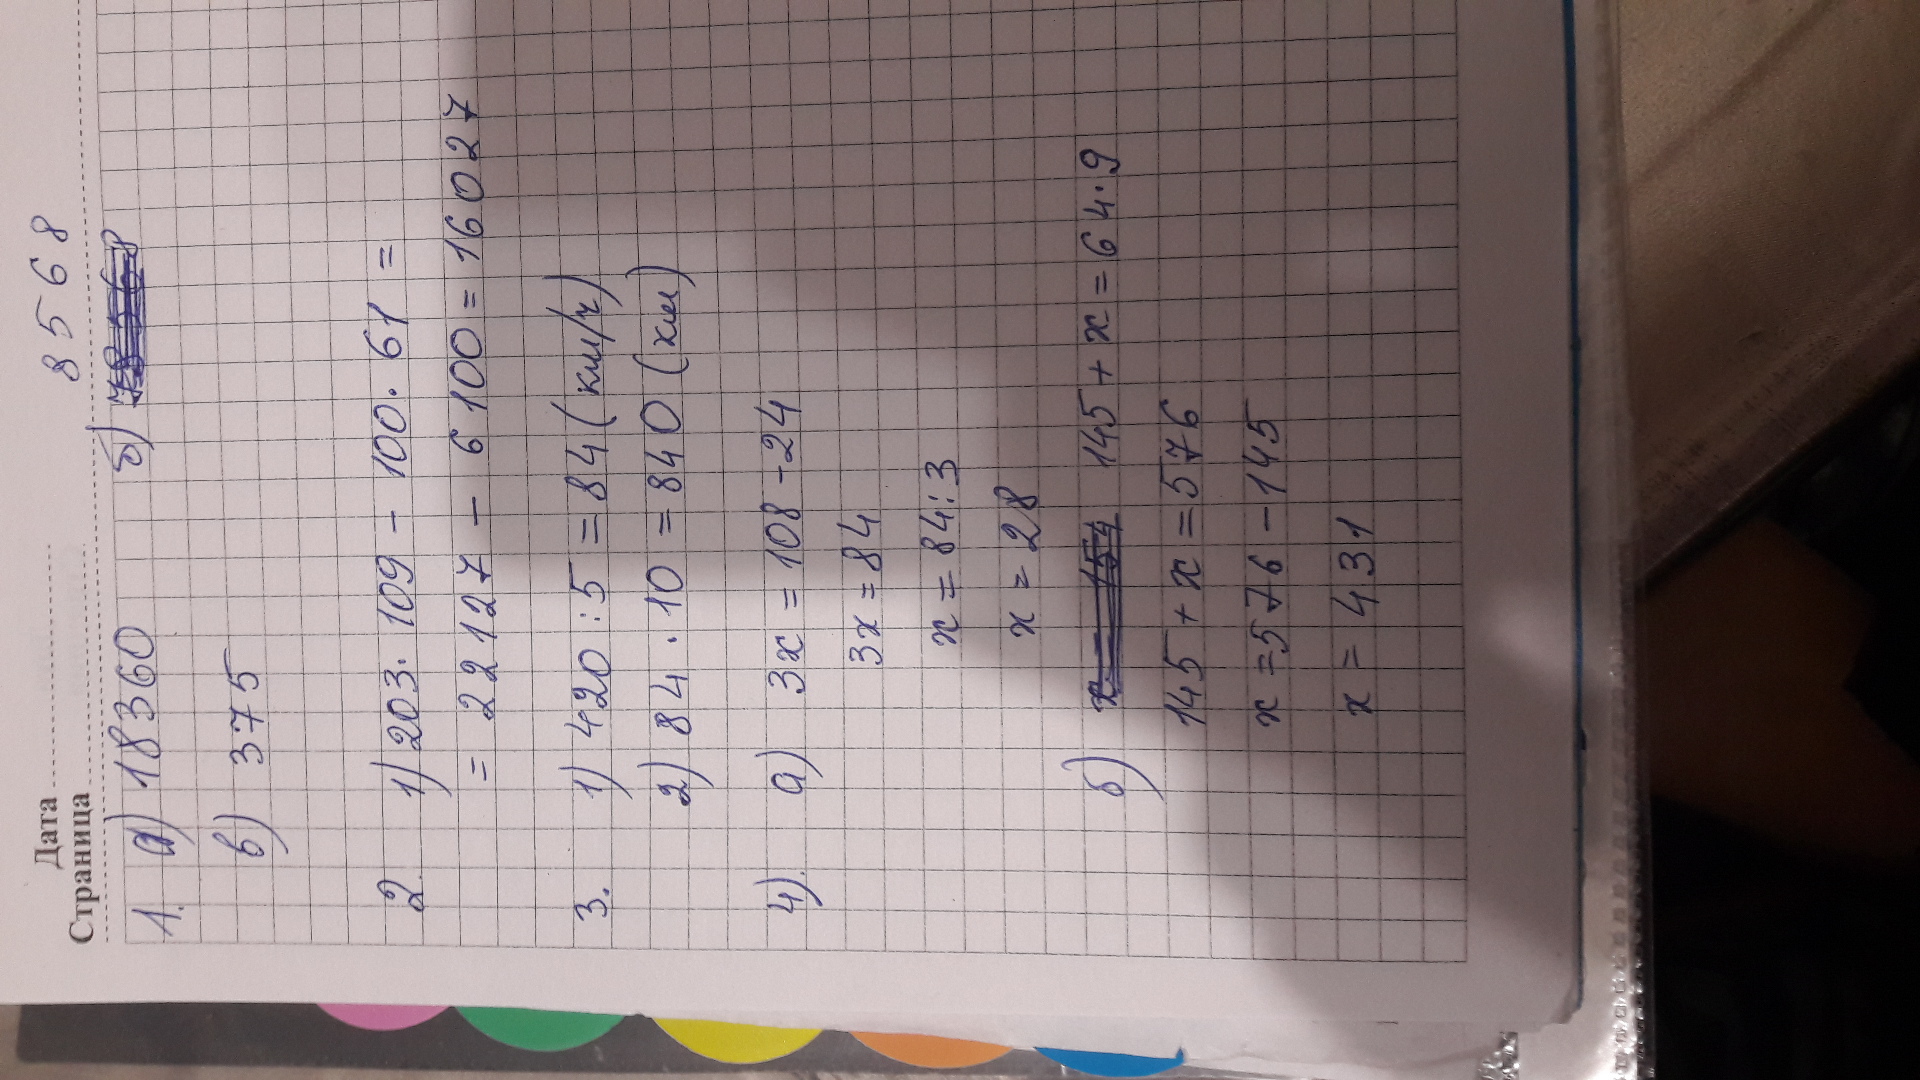 Дата
Страница
8568
1. а) 18360 б)
в) 375
2. 1) 203 · 109 - 100 · 61 =
= 22127 - 6100 = 16027
3. 1) 420 : 5 = 84 (км/ч)
2) 84 · 10 = 840 (км)
4). а) 3x = 108 - 24
3x = 84
x = 84 : 3
x = 28
б) 145 + x = 64 · 9
145 + x = 576
x = 576 - 145
x = 431